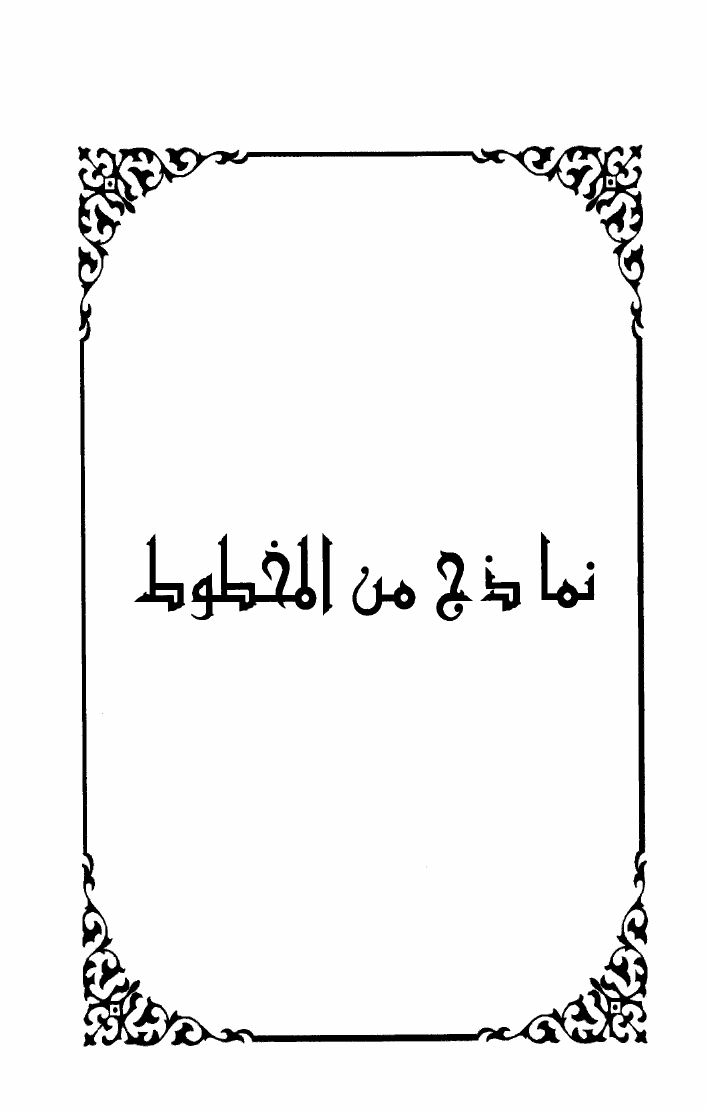 نماذج من المخطوط